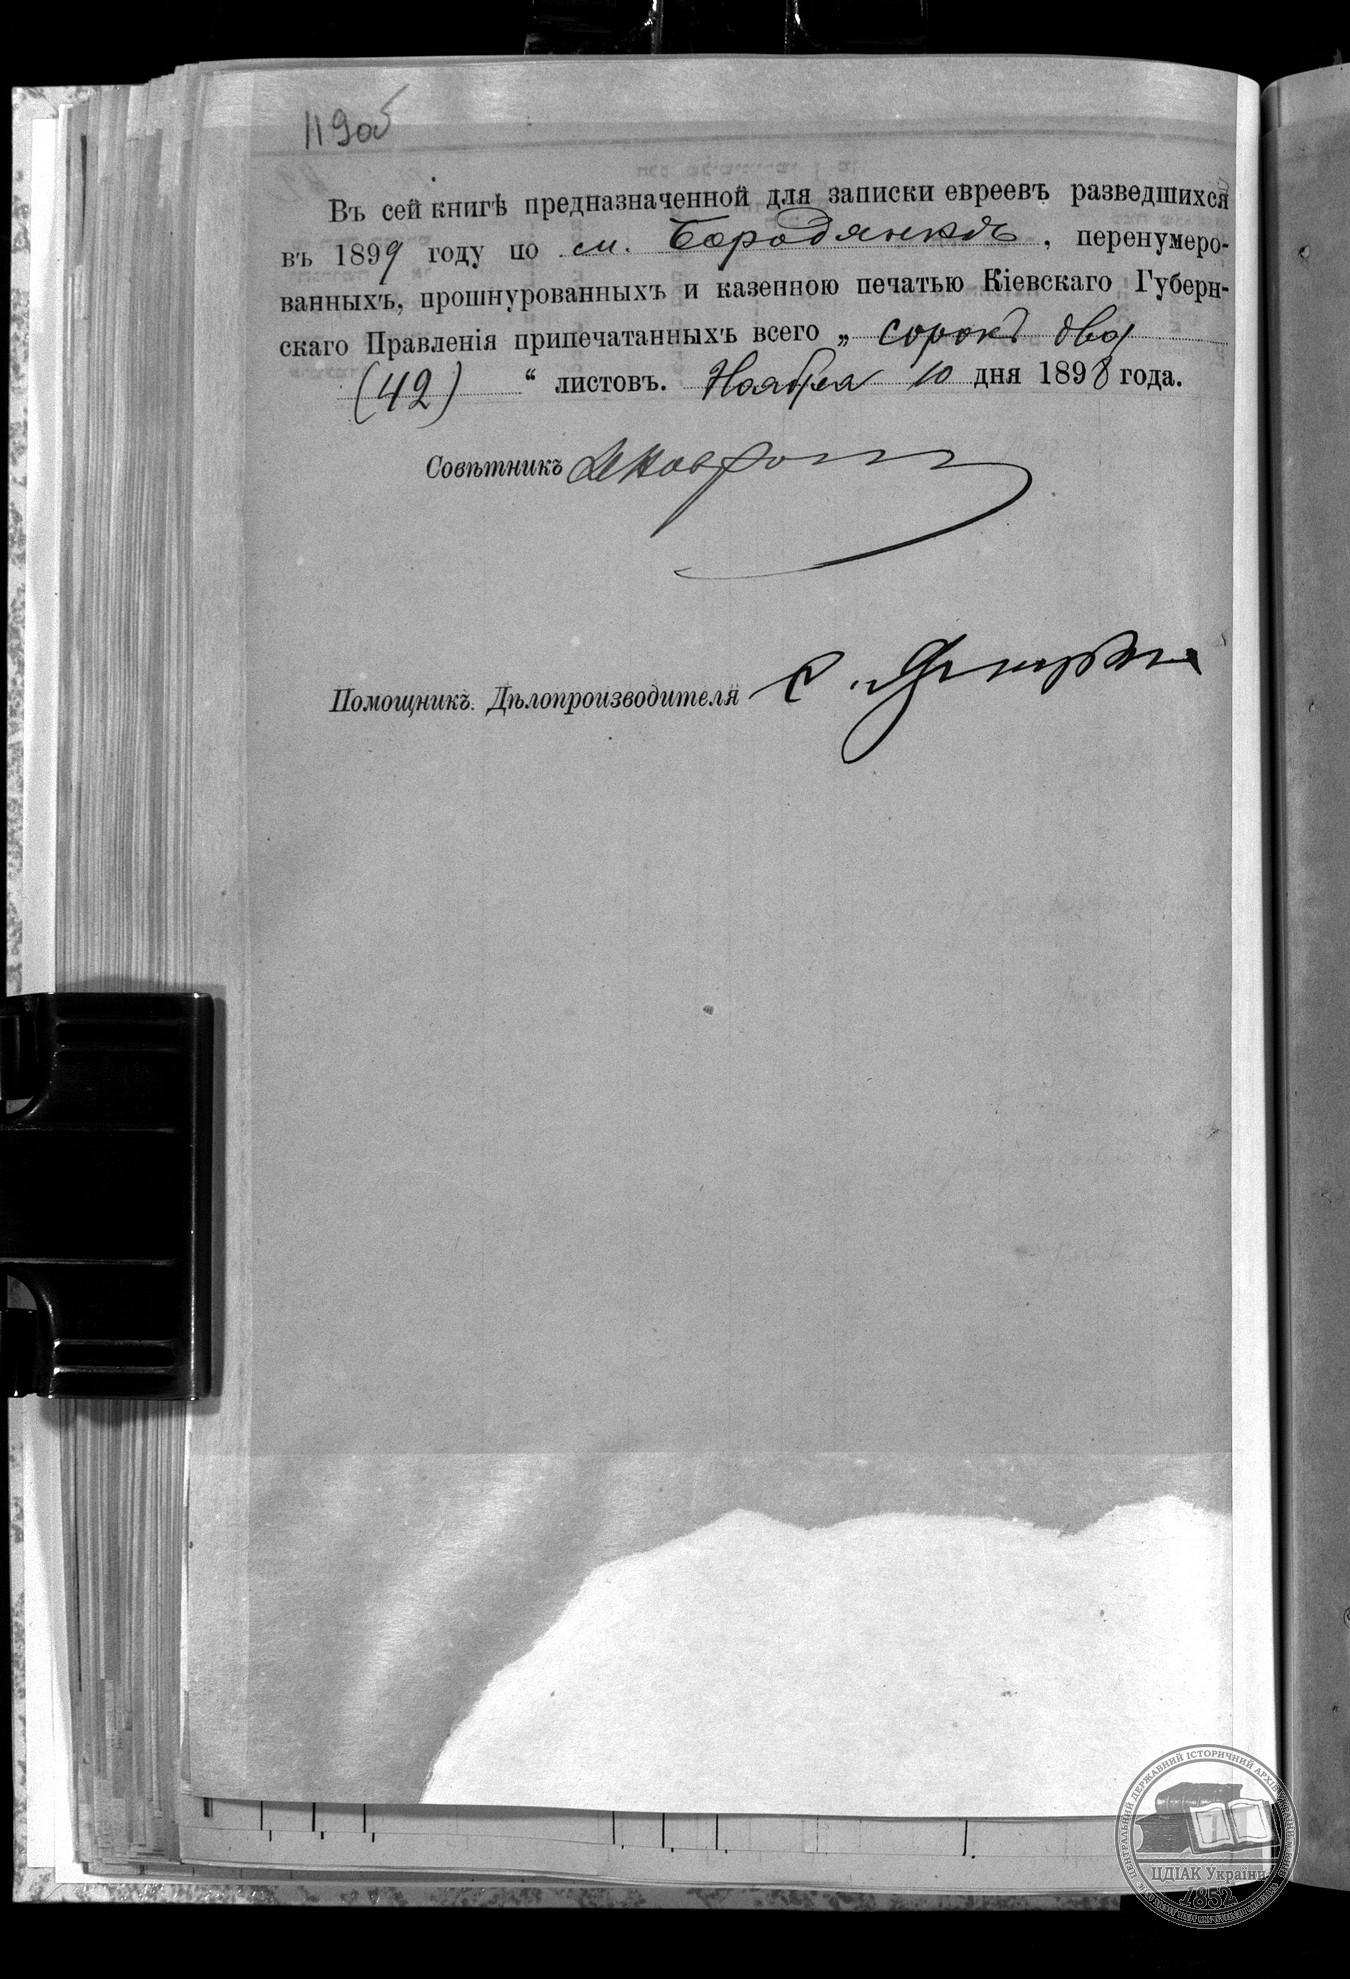 119об
Въ сей книгѣ предназначенной для записки евреевъ разведшихся
въ 1899 году по м. Бородянкѣ, перенумеро-
ванныхъ, прошнурованныхъ и казенною печатью Кіевскаго Губерн-
скаго Правленія припечатанныхъ всего „ сорокъ два
(42) “ листовъ. Ноября 10 дня 1898 года.
Совѣтникъ
Помощникъ Дѣлопроизводителя С.
ЦЕНТРАЛЬНИЙ ДЕРЖАВНИЙ ІСТОРИЧНИЙ АРХІВ УКРАЇНИ
ЦДІАК України
1852